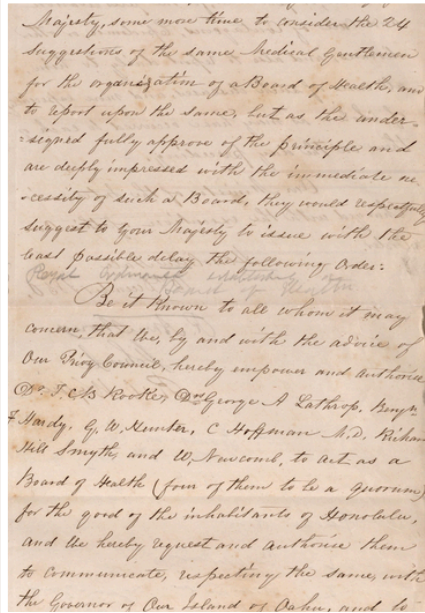 Majesty, some more time to consider the 24
suggestions of the same Medical Gentlemen
for the organization of a Board of Health, and
to report upon the same, but as the under-
=signed fully approve of the principle and
are deeply impressed with the immediate ne
=cessity of such a Board, they would respectfully
suggest to Your Majesty to issue with the
least possible delay the following Order:
Royal Ordinance establishing
Board of Health
Be it Known to all whom it may
concern, that We, by and with the advice of
Our Privy Council, hereby empower and authorise
Dr. T. C. B. Rooke, Dr. George A Lathrop, Benjn
F Hardy, G. W. Hunter, C Hoffman M.D, Richard
Hill Smyth, and W. Newcomb, to act as a
Board of Health (four of them to be a quorum)
for the good of the inhabitants of Honolulu,
and We hereby request and authorise them
to communicate, respecting the same, with
the Governor of Our Island of Oahu, and to